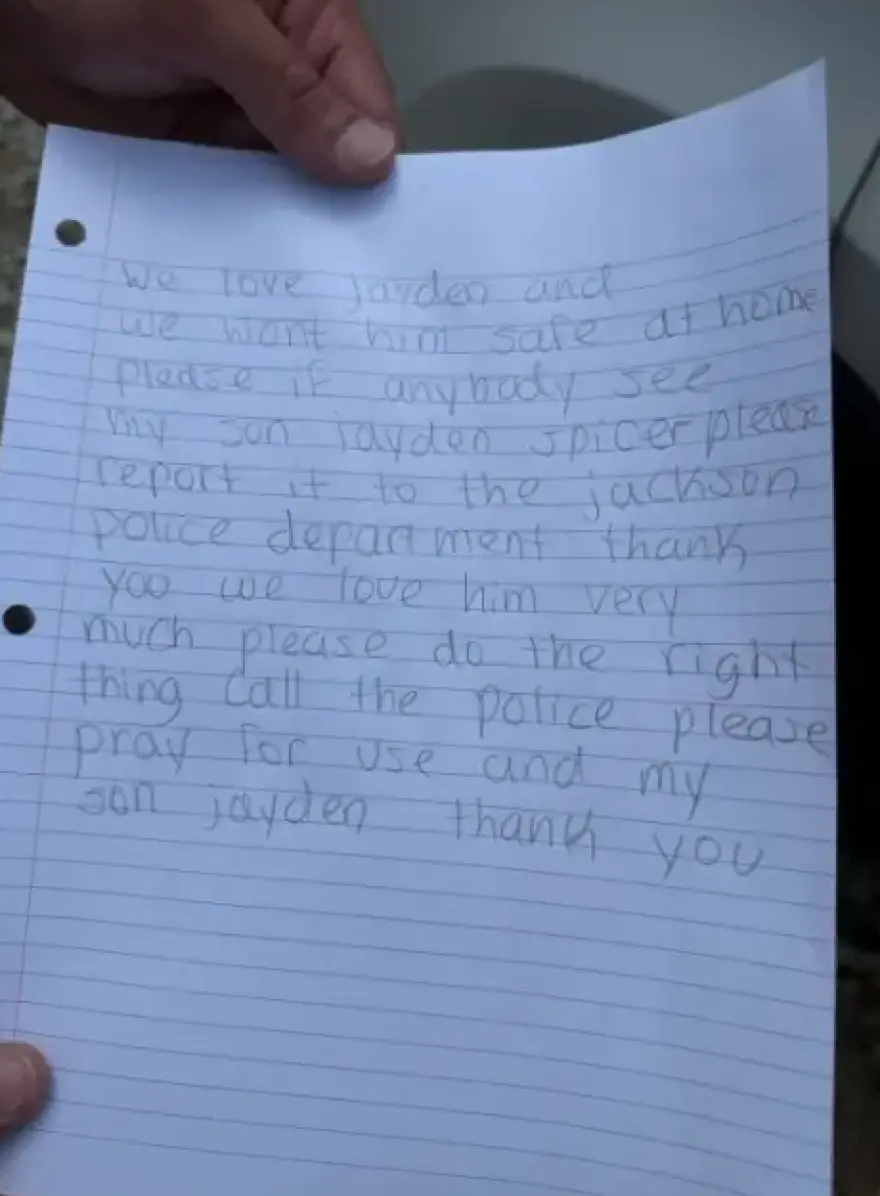 We love jayden and
we want him safe at home
please if anybody see
my son jayden spicer please
report it to the jackson
police department thank
yoo we love him very
much please do the right
thing call the police please
pray for use and my
son jayden thank you